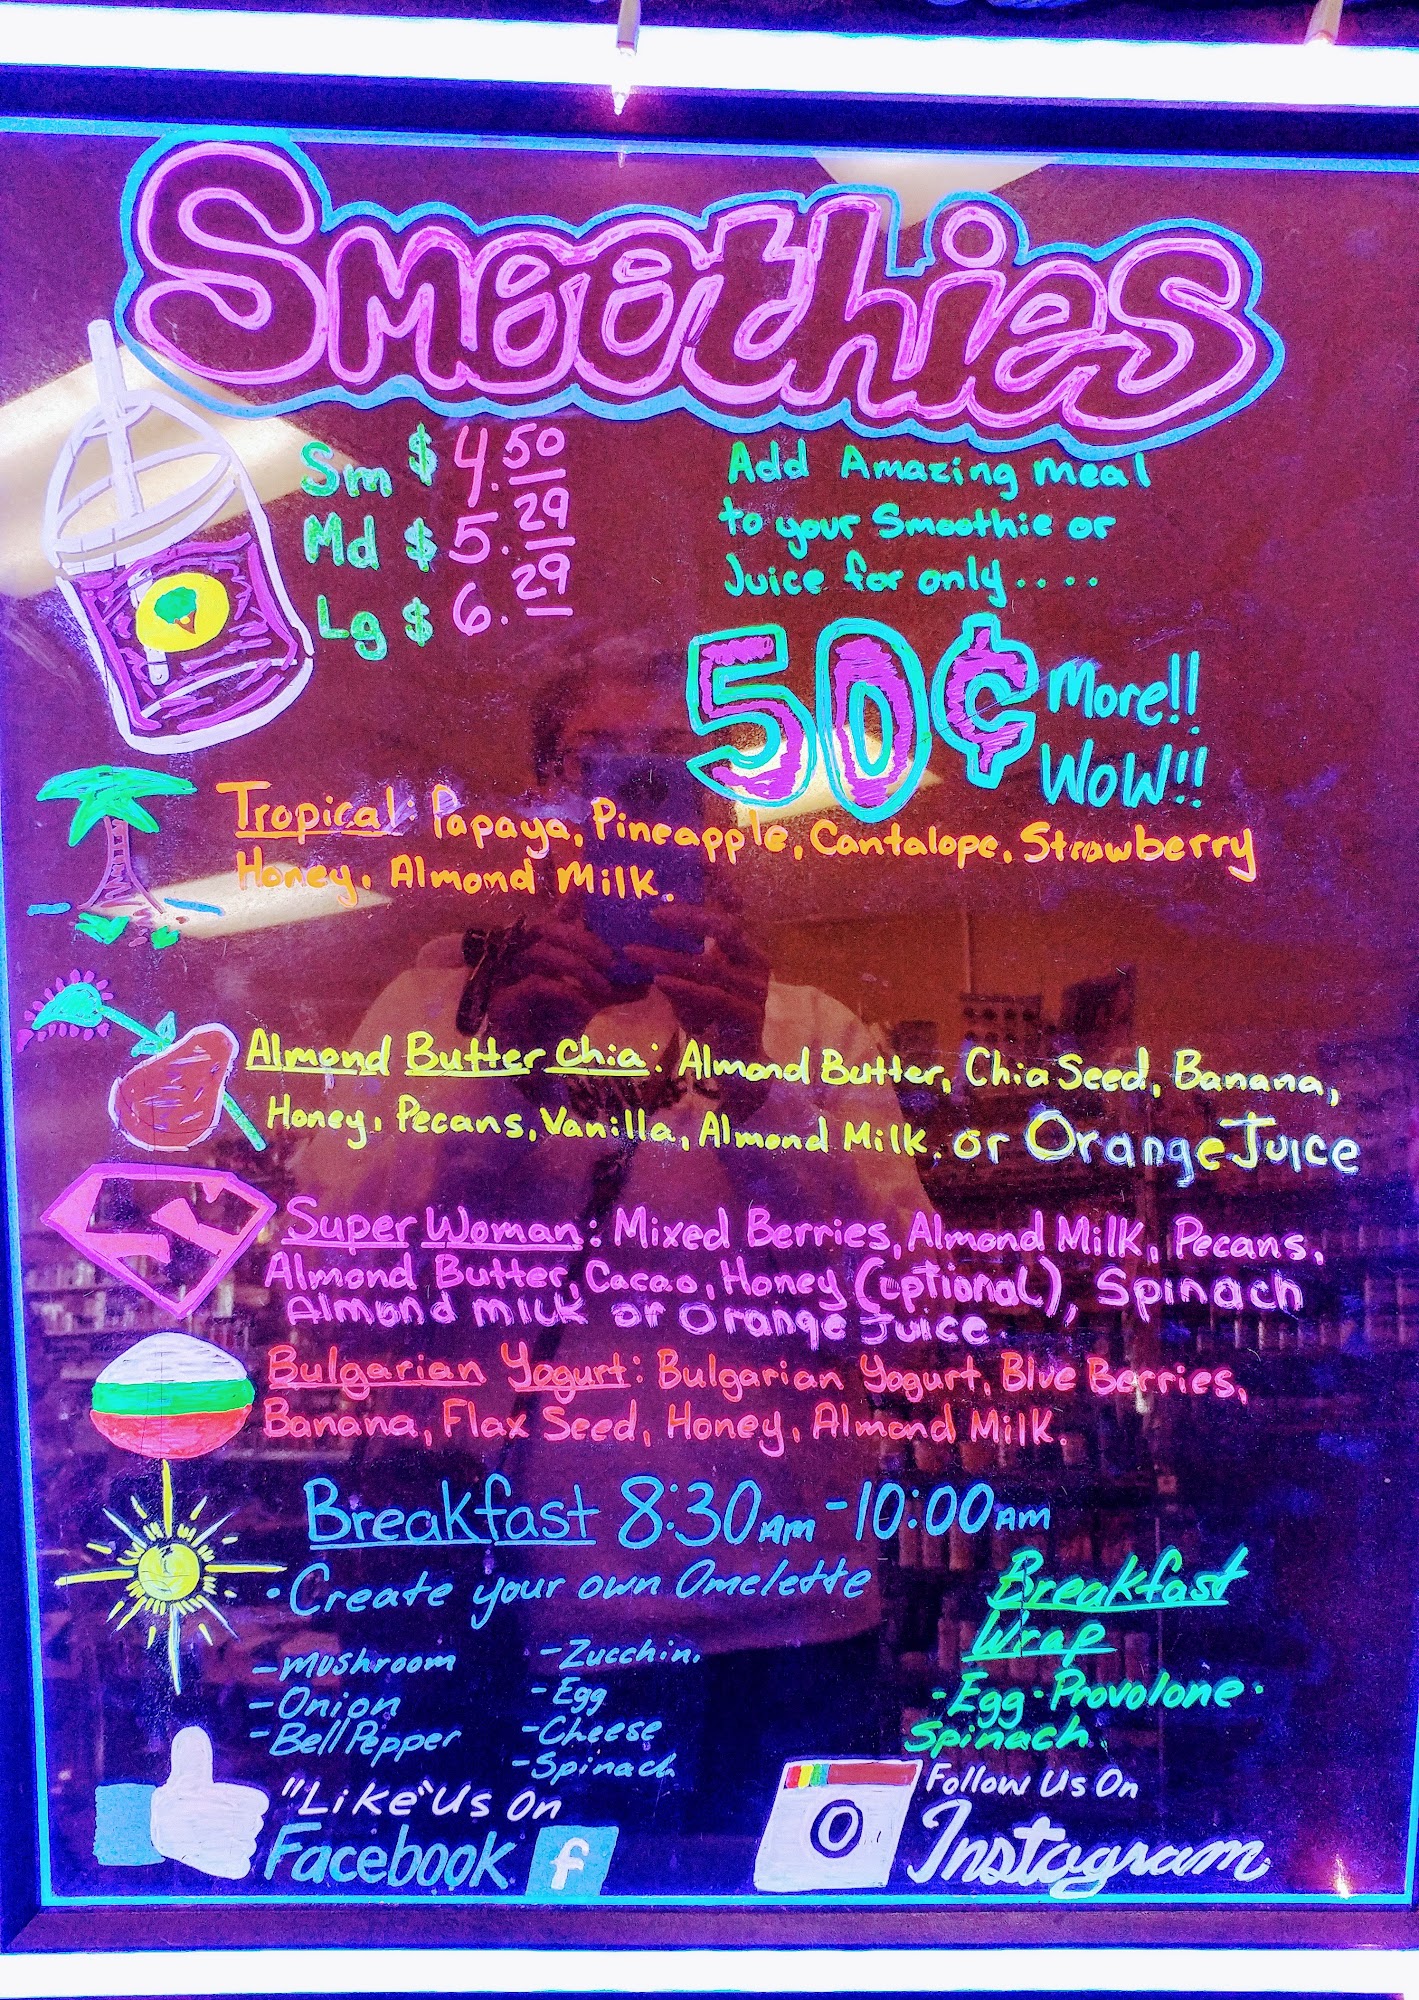 Smoothies
Sm $ 4.50
Md $ 5.29
Lg $ 6.29
Add Amazing meal
to your Smoothie or
Juice for only....
50¢ More!!
WOW!!
Tropical: Papaya, Pineapple, Cantalope, Strawberry
Honey, Almond Milk.
Almond Butter Chia: Almond Butter, Chia Seed, Banana,
Honey, Pecans, Vanilla, Almond Milk. or Orange Juice
Super Woman: Mixed Berries, Almond Milk, Pecans,
Almond Butter, Cacao, Honey (optional), Spinach
Almond milk or Orange Juice.
Bulgarian Yogurt: Bulgarian Yogurt, Blue Berries,
Banana, Flax Seed, Honey, Almond Milk.
Breakfast 8:30AM-10:00AM
• Create your own Omelette
-Mushroom
-Onion
-Bell Pepper
-Zucchini
-Egg
-Cheese
-Spinach
Breakfast
Wrap
• Egg • Provolone •
Spinach
"Like" Us On
Facebook f
Follow Us On
Instagram